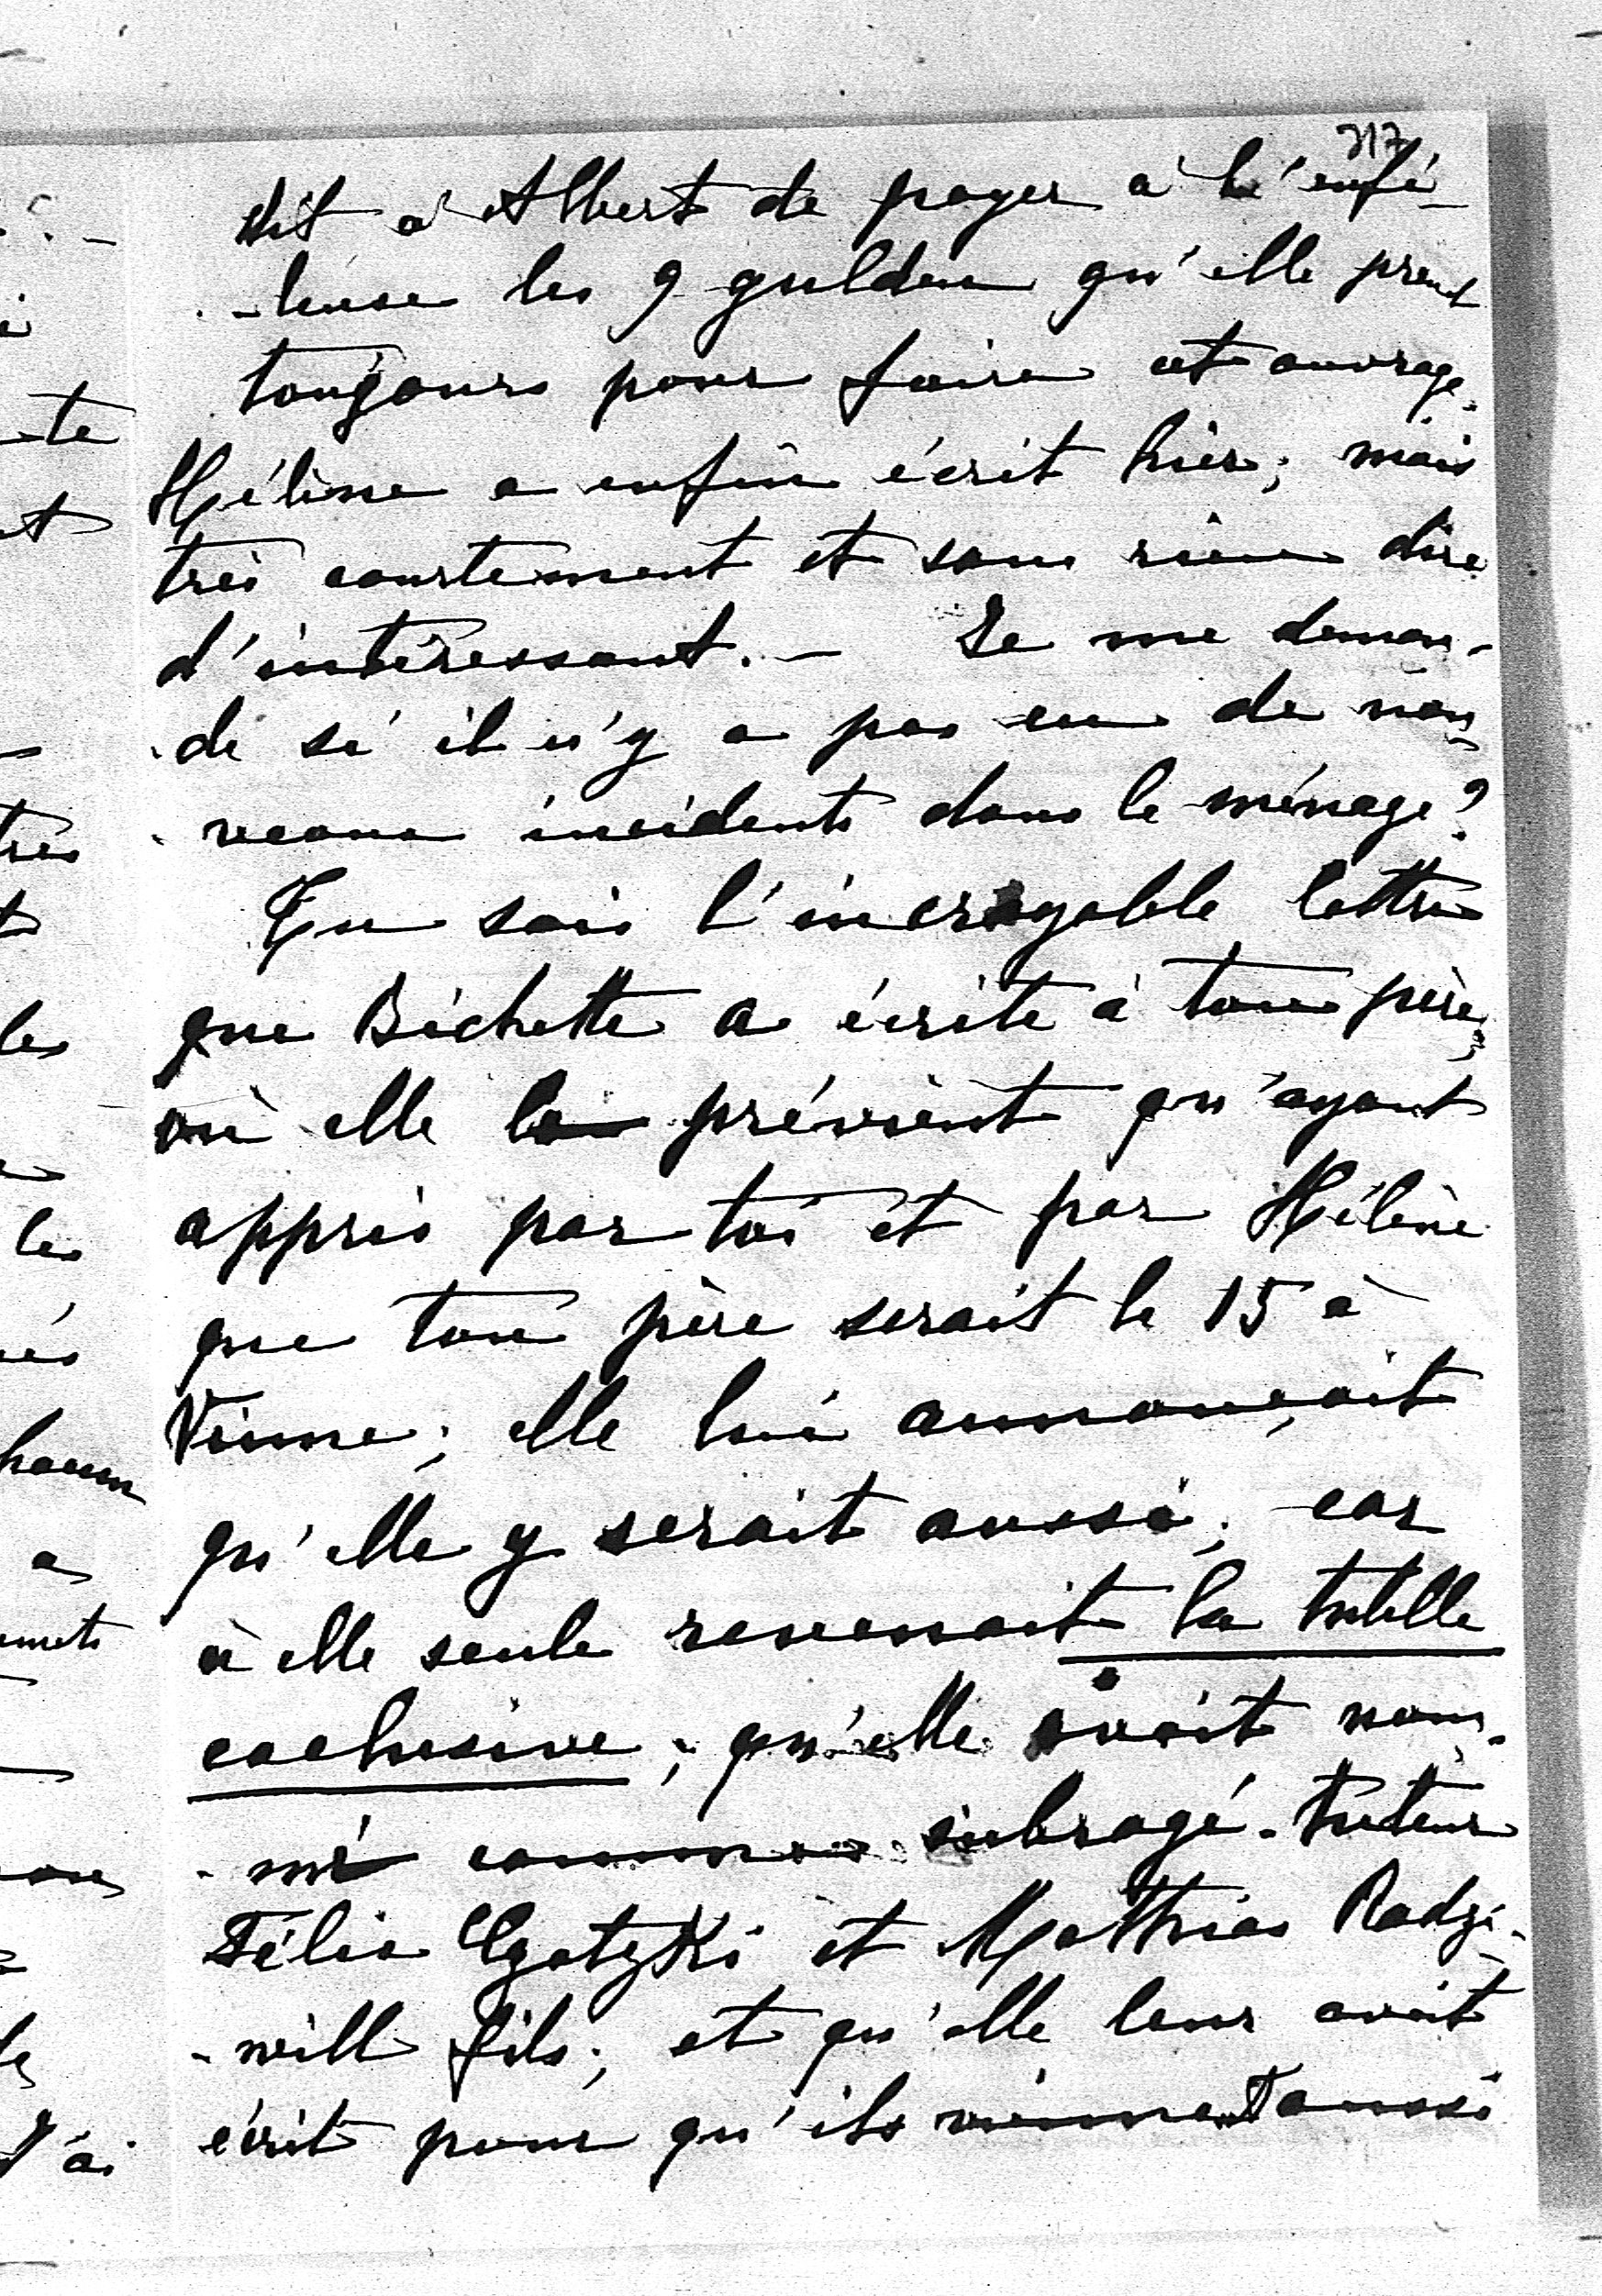 317
dit à Albert de payer à l'enfi-
-leuse les 9 gulden qu'elle prend
toujours pour faire cet ouvrage.
Hélène a enfin écrit hier; mais
très courtement et sans rien dire
d'intéressant. — Je me deman-
de si il n'y a pas eu de nou-
-veaux incidents dans le ménage?
Tu sais l'incroyable lettre
que Bichette a écrite à ton père,
où elle le prévient qu'ayant
appris par toi et par Hélène
que ton père serait le 15 à
Vienne; elle lui annonçait
qu'elle y serait aussi; car
à elle seule revenait la tutelle
exclusive; qu'elle avait nom-
-mé comme subrogé-tuteur
Félix et Mathias Radzi-
-will fils; et qu'elle leur avait
écrit pour qu'ils viennent aussi
te
t
très
t
les
les
a
ons
J'ai